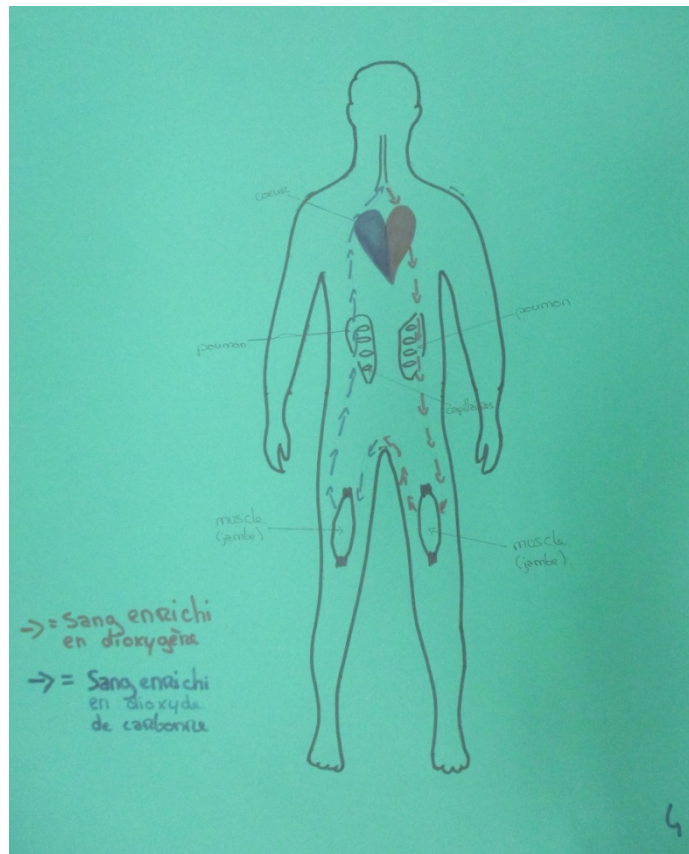 coeur
poumon
poumon
capillaires
muscle
(jambe)
muscle
(jambe)
-> = Sang enrichi
en dioxygène
-> = Sang enrichi
en dioxyde
de carbone
4